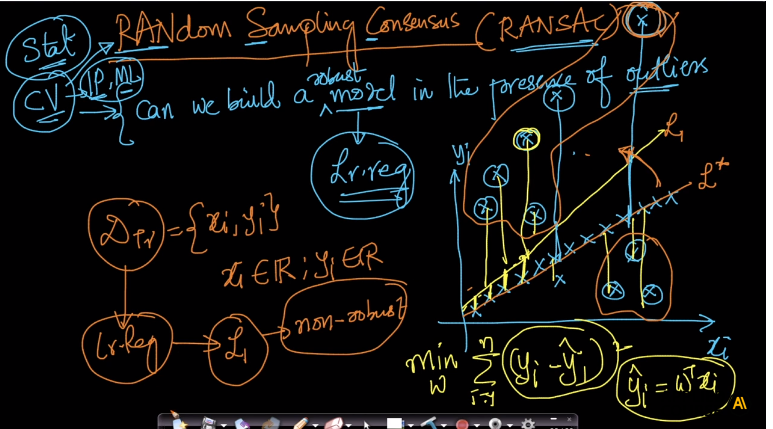 RANdom Sampling Consensus (RANSAC)
Stat
CV
IP, ML
Can we build a robust model in the presence of outliers
Lr.reg
D_Tr = {xi, yi}
xi ∈ R ; yi ∈ R
Lr.Reg
L1
non-robust
yi
L1
L*
xi
min_w Σ_{i=1}^{n} (yi - ŷi)²
ŷi = wᵀxi